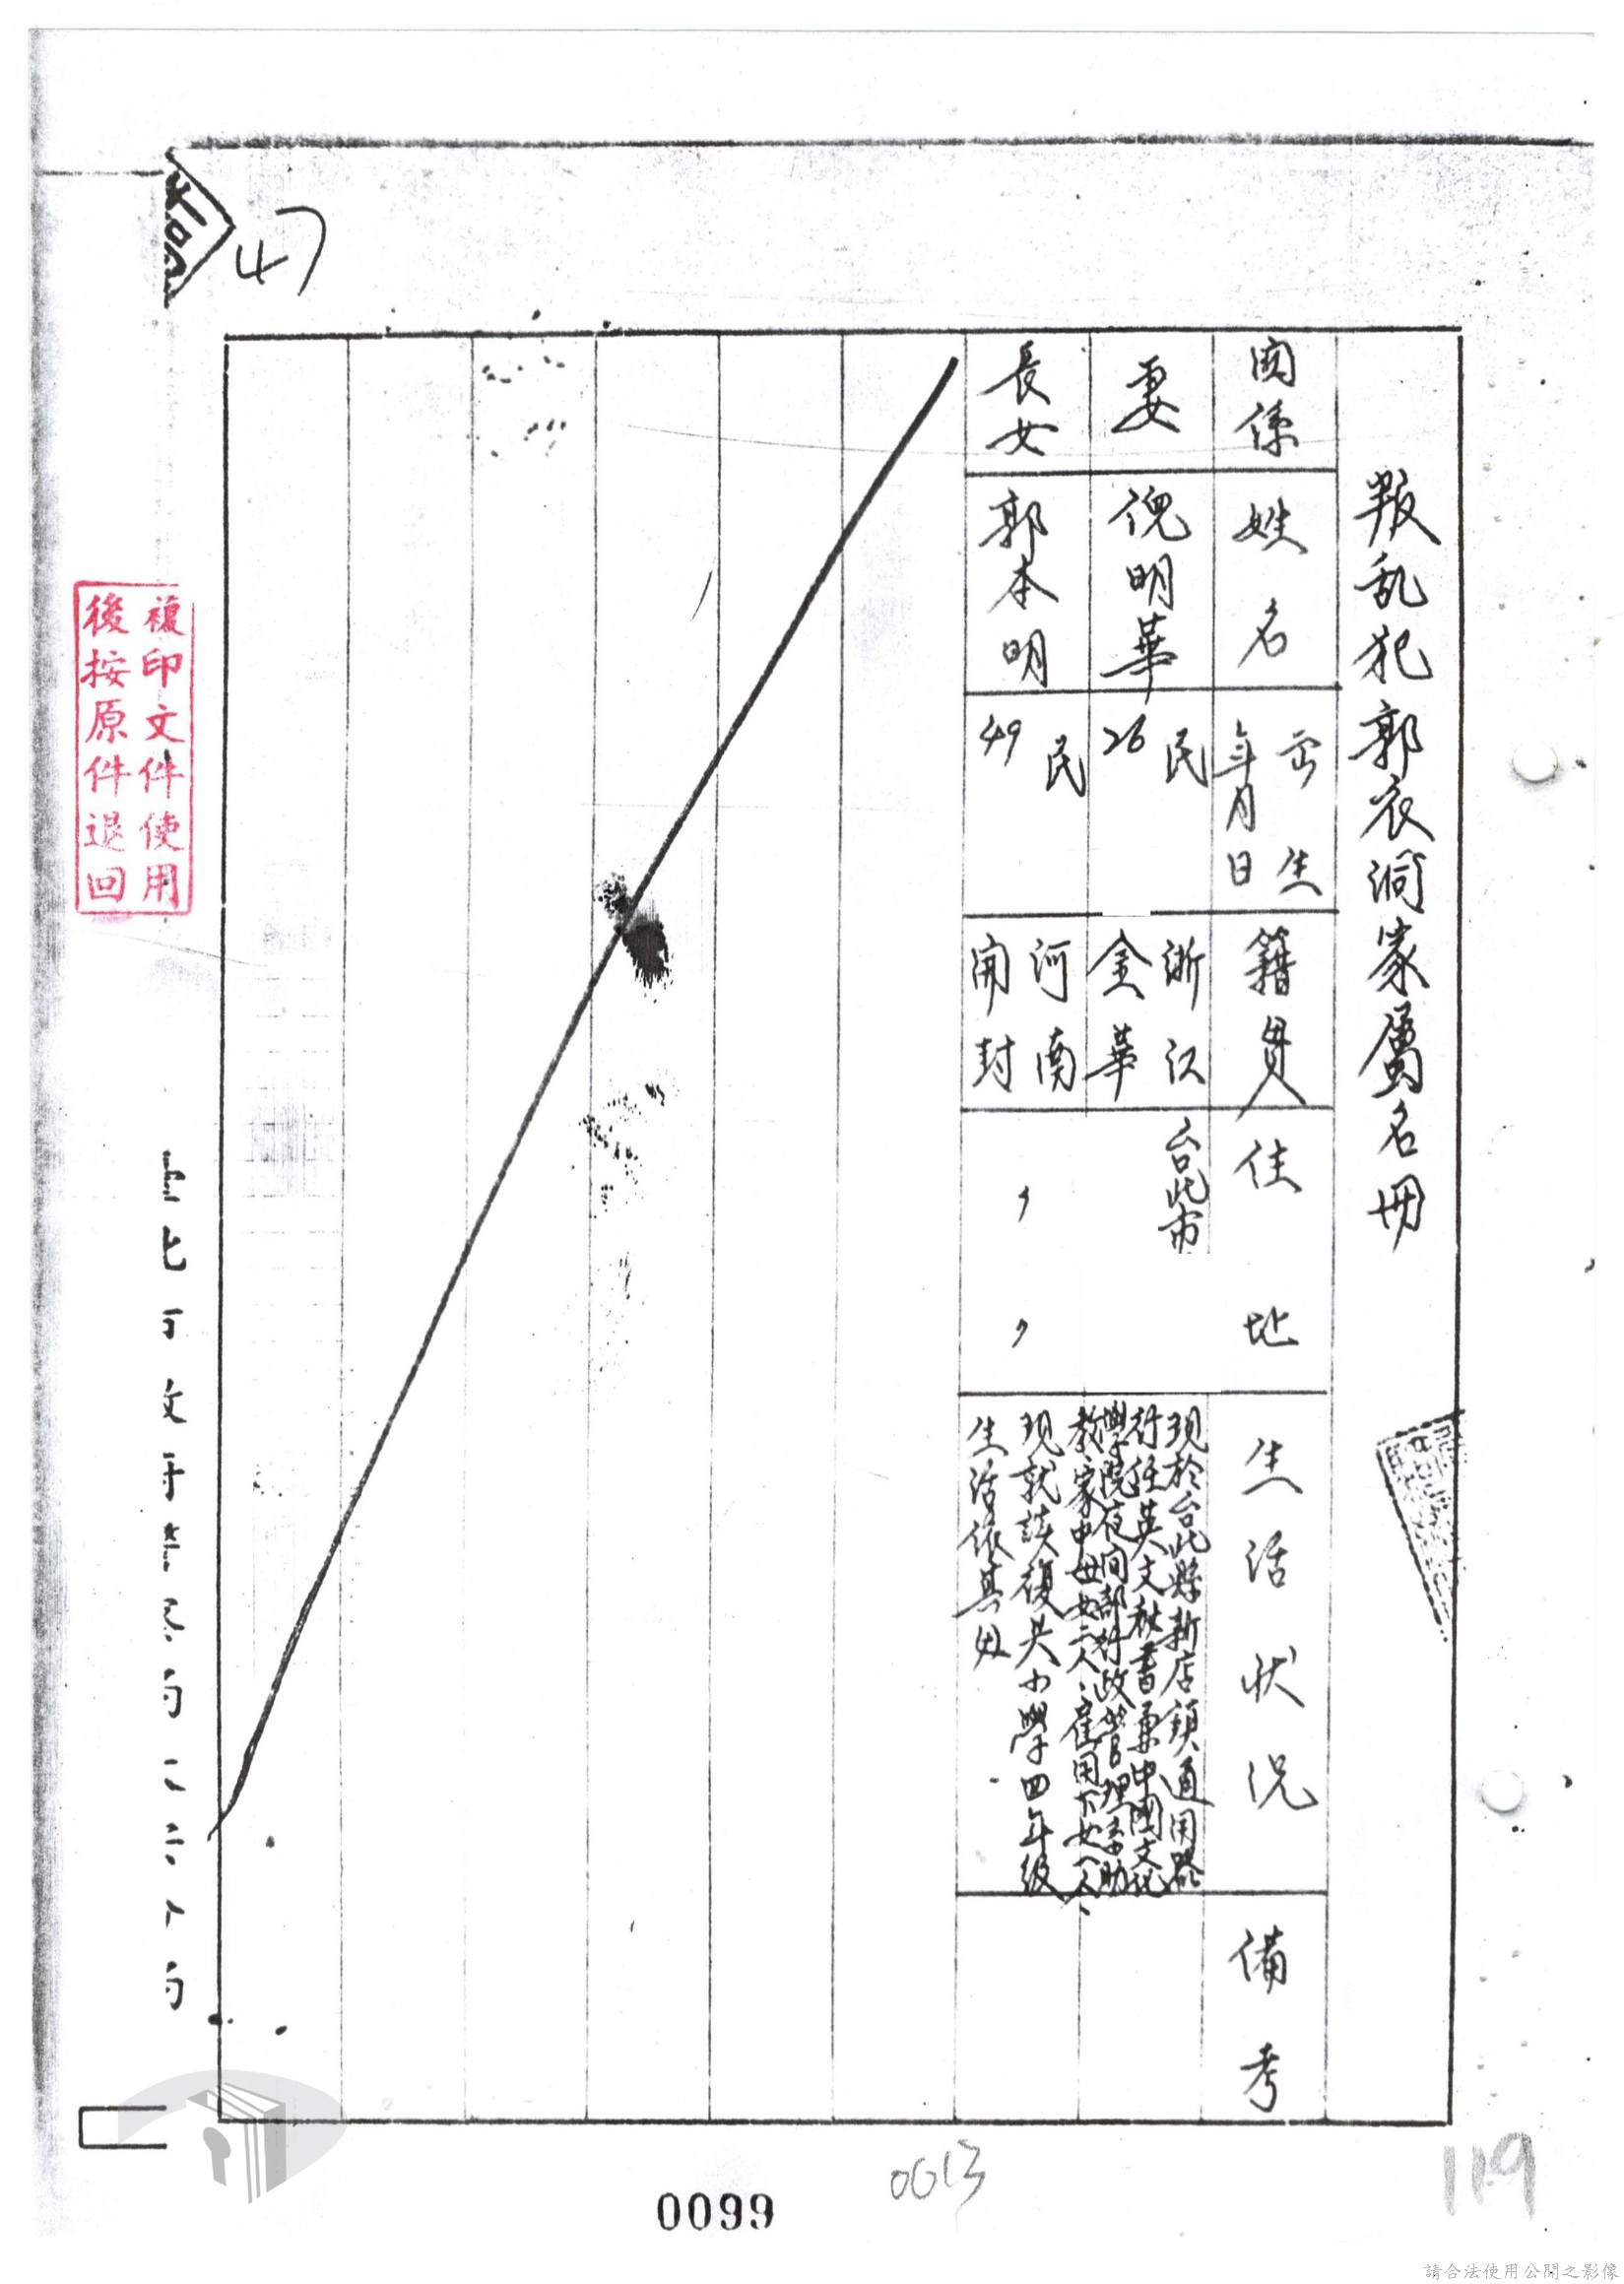 叛乱犯郭衣洞家屬名冊
関係
姓名
出生
年月日
籍貫
住址
生活狀況
備考
妻
倪明華
民
26
浙江
金華
台北市
現於台北縣新店鎮通用器
行任英文秘書兼中國文化
學院夜间部行政管理系助
教、家中母女二人、雇用下女一人、
長女
郭本明
民
49
河南
開封
〃 〃
現就讀復興小學四年級
生活依其母
47
複印文件使用
後按原件退回
0013
0099
119
請合法使用公開之影像